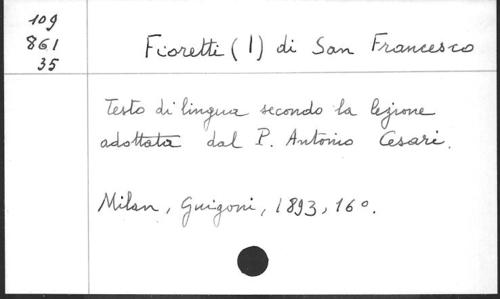 109
861
35
Fioretti (I) di San Francesco
Testo di lingua secondo la lezione
adottata dal P. Antonio Cesari.
Milan, Guigoni, 1893, 16º.